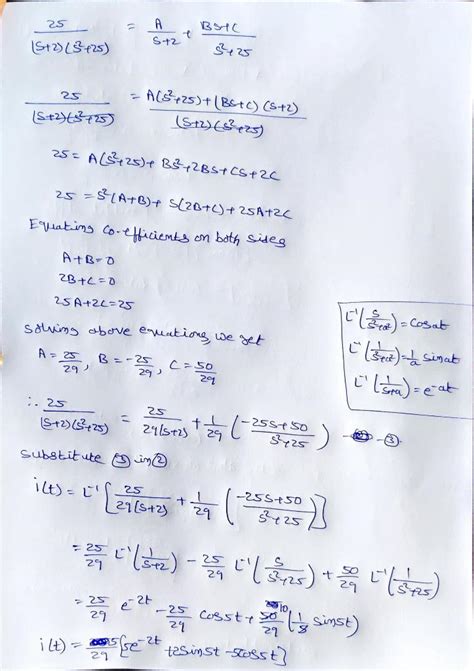 25/((s+2)(s²+25)) = A/(s+2) + (Bs+C)/(s²+25)
25/((s+2)(s²+25)) = (A(s²+25)+(Bs+C)(s+2))/((s+2)(s²+25))
25 = A(s²+25)+Bs²+2Bs+Cs+2C
25 = s²(A+B)+s(2B+C)+25A+2C
Equating co-efficients on both sides
A+B=0
2B+C=0
25A+2C=25
Solving above equations, we get
A=25/29, B=-25/29, C=50/29
L⁻¹(s/(s²+a²)) = cosat
L⁻¹(1/(s²+a²)) = 1/a sinat
L⁻¹(1/(s+a)) = e^-at
∴ 25/((s+2)(s²+25)) = 25/(29(s+2)) + 1/29 ((-25s+50)/(s²+25)) - ③.
substitute ③ in ②
i(t) = L⁻¹[25/(29(s+2)) + 1/29 ((-25s+50)/(s²+25))]
= 25/29 L⁻¹(1/(s+2)) - 25/29 L⁻¹(s/(s²+25)) + 50/29 L⁻¹(1/(s²+25))
= 25/29 e^-2t - 25/29 cos5t + 50/29 10 (1/5 sin5t)
i(t) = 5/29 [5e^-2t +2sin5t -5cos5t]